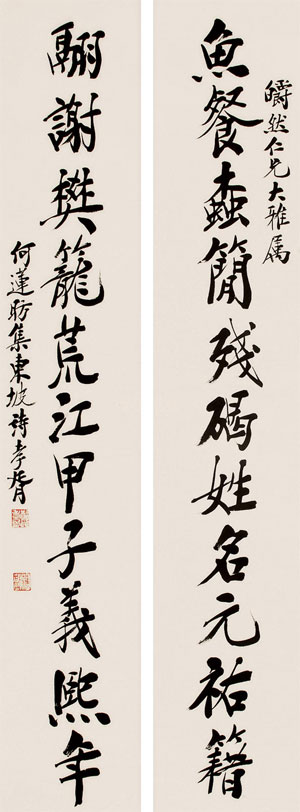 皭然仁兄大雅属
魚餐蠹簡殘碣姓名元祐籍
翮謝樊籠荒江甲子義熙年
何蓮昉集東坡詩孝胥